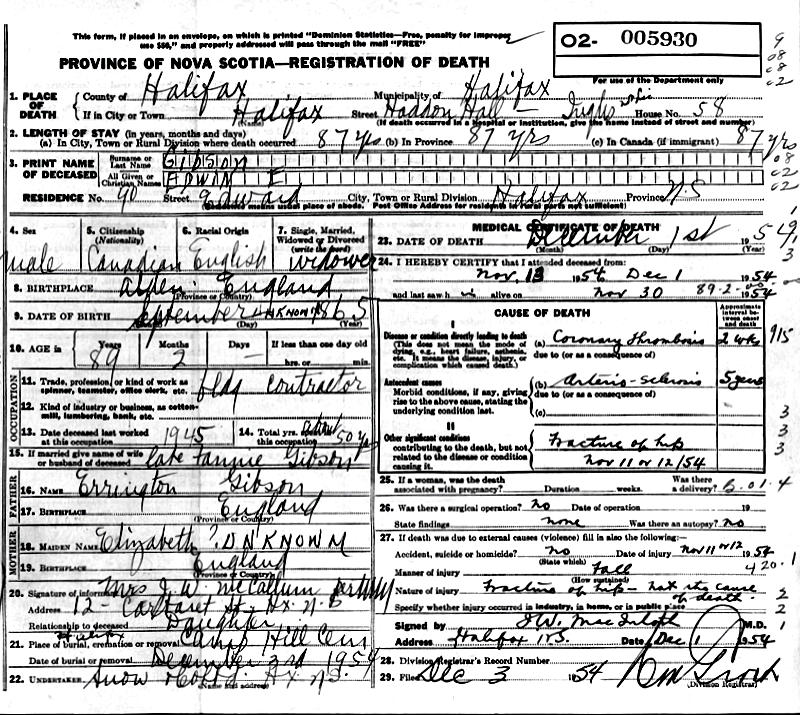 This form, if placed in an envelope, on which is printed "Dominion Statistics—Free, penalty for improper
use $50," and properly addressed will pass through the mail "FREE"
O2- 005930
PROVINCE OF NOVA SCOTIA—REGISTRATION OF DEATH
For use of the Department only
1. PLACE OF DEATH County of Halifax Municipality of Halifax
If in City or Town Halifax Street Haddon Hall - Inglis House No. 58
(Name) (If death occurred in a hospital or institution, give the name instead of street and number)
2. LENGTH OF STAY (in years, months and days)
(a) In City, Town or Rural Division where death occurred 87 yrs (b) In Province 87 yrs (c) In Canada (if immigrant) 87 yrs
3. PRINT NAME OF DECEASED Surname or Last Name GIBSON
All Given or Christian Names EDWIN E
RESIDENCE No. 90 Street Edward City, Town or Rural Division Halifax Province N.S
(Residence means usual place of abode. Post Office Address for residents in rural areas not sufficient)
4. Sex male
5. Citizenship (Nationality) Canadian
6. Racial Origin English
7. Single, Married, Widowed or Divorced (write the word) widower
8. BIRTHPLACE England
(Province or Country)
9. DATE OF BIRTH September UNKNOWN 1865
(Month) (Day) (Year)
10. AGE in Years 89 Months 2 Days — If less than one day old
hrs. or min.
OCCUPATION
11. Trade, profession or kind of work as spinner, teamster, office clerk, etc. bldg contractor
12. Kind of industry or business, as cotton-mill, lumbering, bank, etc.
13. Date deceased last worked at this occupation 1945 14. Total yrs. this occupation about 50 yrs
15. If married give name of wife or husband of deceased late Fannie Gibson
FATHER
16. NAME Errington Gibson
17. BIRTHPLACE England
(Province or Country)
MOTHER
18. MAIDEN NAME Elizabeth ? UNKNOWN
19. BIRTHPLACE England
(Province or Country)
20. Signature of informant Mrs J. W. McCallum
Address 12- St - Hx N.S
Relationship to deceased Daughter
21. Place of burial, cremation or removal Halifax Camp Hill Cem
Date of burial or removal December 3rd 1954
22. UNDERTAKER Snow & Co Ltd. Hx N.S.
(Name and address)
MEDICAL CERTIFICATE OF DEATH
23. DATE OF DEATH December 1st 1954
(Month) (Day) (Year)
24. I HEREBY CERTIFY that I attended deceased from:
Nov. 13 1954 to Dec 1 1954
and last saw h im alive on Nov 30 1954
89-2-00
CAUSE OF DEATH
Approximate interval between onset and death
I
Disease or condition directly leading to death (a) Coronary thrombosis 2 wks
(This does not mean the mode of dying, e.g., heart failure, asthenia, etc. It means the disease, injury, or complication which caused death.) due to (or as a consequence of)
Antecedent causes (b) Arterio-sclerosis 5 years
Morbid conditions, if any, giving rise to the above cause, stating the underlying condition last. due to (or as a consequence of)
(c)
II
Other significant conditions contributing to the death, but not related to the disease or condition causing it. Fracture of hip
Nov 11 or 12/54
25. If a woman, was the death associated with pregnancy? Duration weeks. Was there a delivery?
26. Was there a surgical operation? no Date of operation 19
State findings none Was there an autopsy? no
27. If death was due to external causes (violence) fill in also the following:
Accident, suicide or homicide? no Date of injury Nov 11 or 12 1954
(State which)
Manner of injury Fall 420.1
(How sustained)
Nature of injury Fracture of hip - not the cause of death.
Specify whether injury occurred in industry, in home, or in public place
Signed by M.D.
Address Halifax N.S. Date Dec 1 1954
28. Division Registrar's Record Number
29. Filed Dec 3 1954
(Division Registrar)